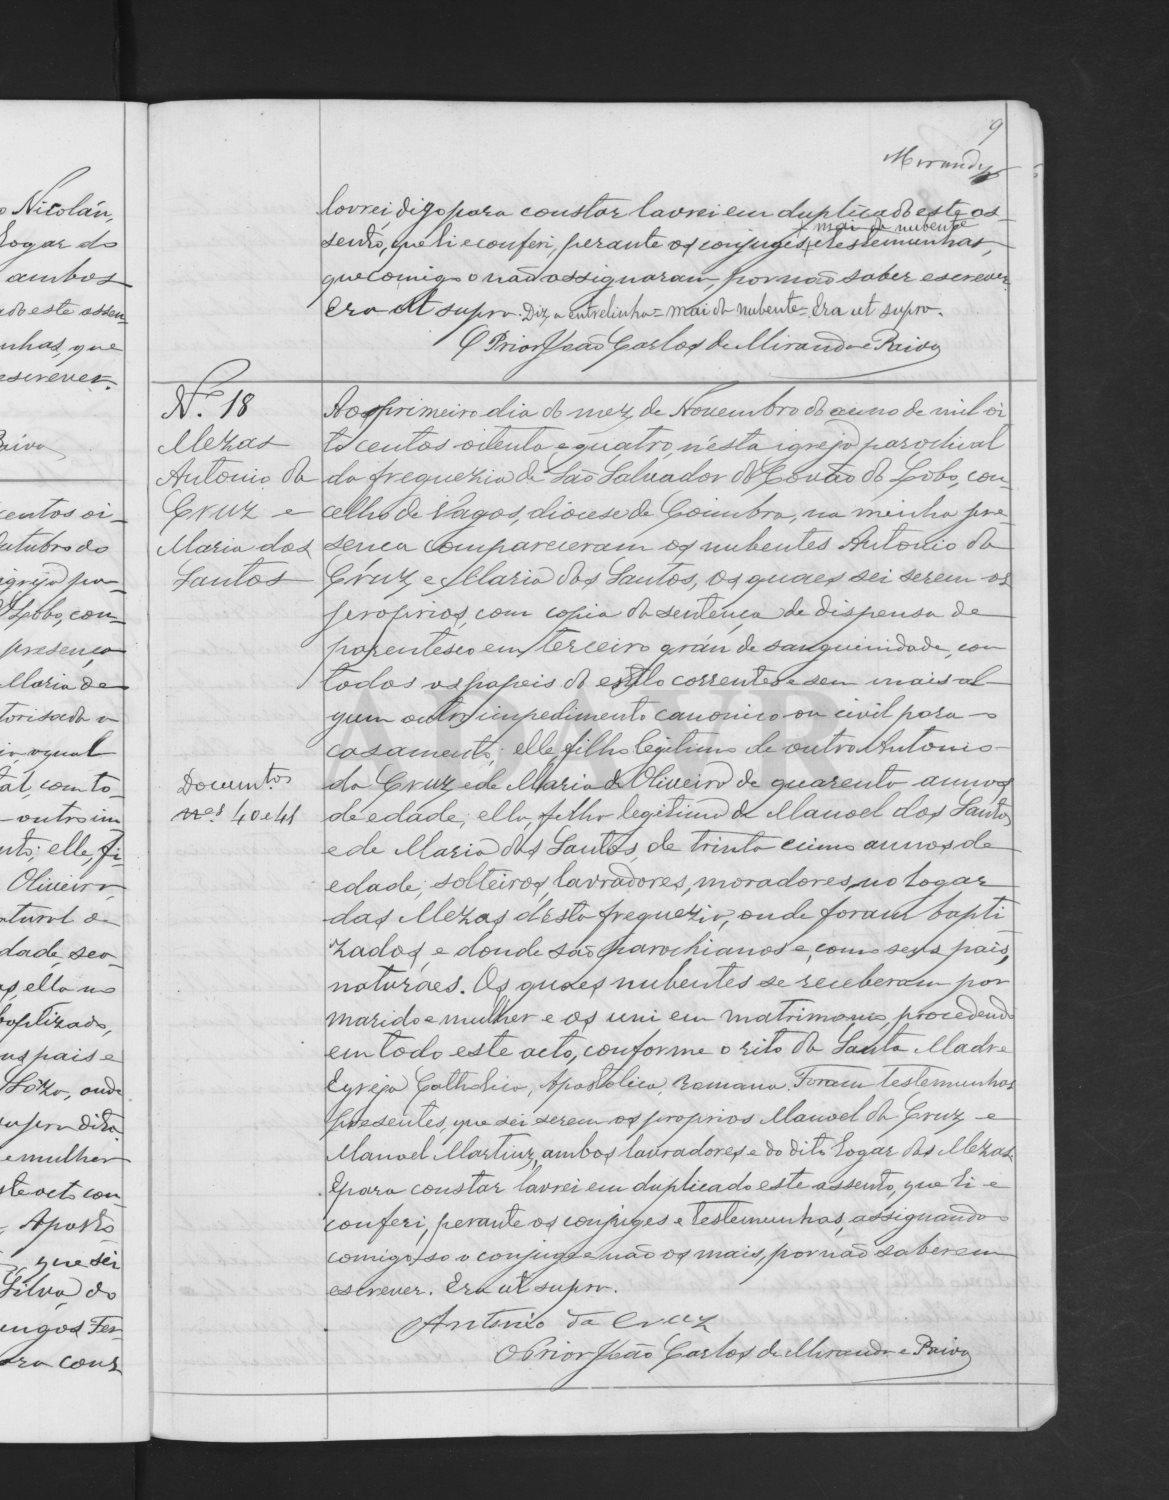 9
Miranda
lavrei digo para constar lavrei em duplicado este as-
mai da nubente
sento, que li e conferi, perante os conjuges, e testemunhas,
que comigo o não assignaram, por não saber escrever.
Era ut supra. Diz, a entrelinha = mai da nubente = Era ut supra.
O Prior João Carlos de Miranda e Paiva
N.º 18
Mezas
Antonio da
Cruz e
Maria dos
Santos
Documt.os
nes 40 e 41
Aos primeiro dia do mez de Novembro do anno de mil oi
to centos oitenta e quatro, n'esta igreja parochial
da freguezia de São Salvador do Covão do Lobo, con-
celho de Vagos, diocese de Coimbra, na minha pre-
sença compareceram os nubentes Antonio da
Cruz, e Maria dos Santos, os quaes sei serem os
proprios, com copia da sentença de dispensa de
parentesco em terceiro gráu de sanguinidade, com
todos os papeis do estylo correntes e sem mais al-
gum outro impedimento canonico ou civil para o
casamento; elle, filho legitimo de outro Antonio
da Cruz e de Maria de Oliveira de quarenta annos
de edade; ella, filha legitima de Manoel dos Santos
e de Maria dos Santos, de trinta cinco annos de
edade; solteiros, lavradores, moradores, no logar
das Mezas d'esta freguezia, onde foram bapti
zados, e donde são parochianos e, como seus pais,
naturaes. Os quaes nubentes se receberam por
marido e mulher e os uni em matrimonio, procedendo
em todo este acto, conforme o rito da Santa Madre
Egreja Catholica, Apostolica, Romana. Foram testemunhas
presentes, que sei serem os proprios Manoel da Cruz e
Manoel Martins, ambos lavradores e do dito logar das Mezas.
E para constar lavrei em duplicado este assento, que li e
conferi, perante os conjuges e testemunhas, assignando
comigo, só o conjuge e não os mais, por não saberem
escrever. Era ut supra.
Antonio da Cruz
O Prior João Carlos de Miranda e Paiva
Nicoláu,
logar do
ambos
este assen-
nhas, que
escrever.
Paiva
centos oi-
outubro do
igreja pa-
Lobo, con-
presença
Maria de
torisada
com to-
outro im-
elle, fi-
Oliveira,
ella
pais e
onde
supra dito
e mulher
este acto con
Aposto
que sei
Silva, do
Fer-